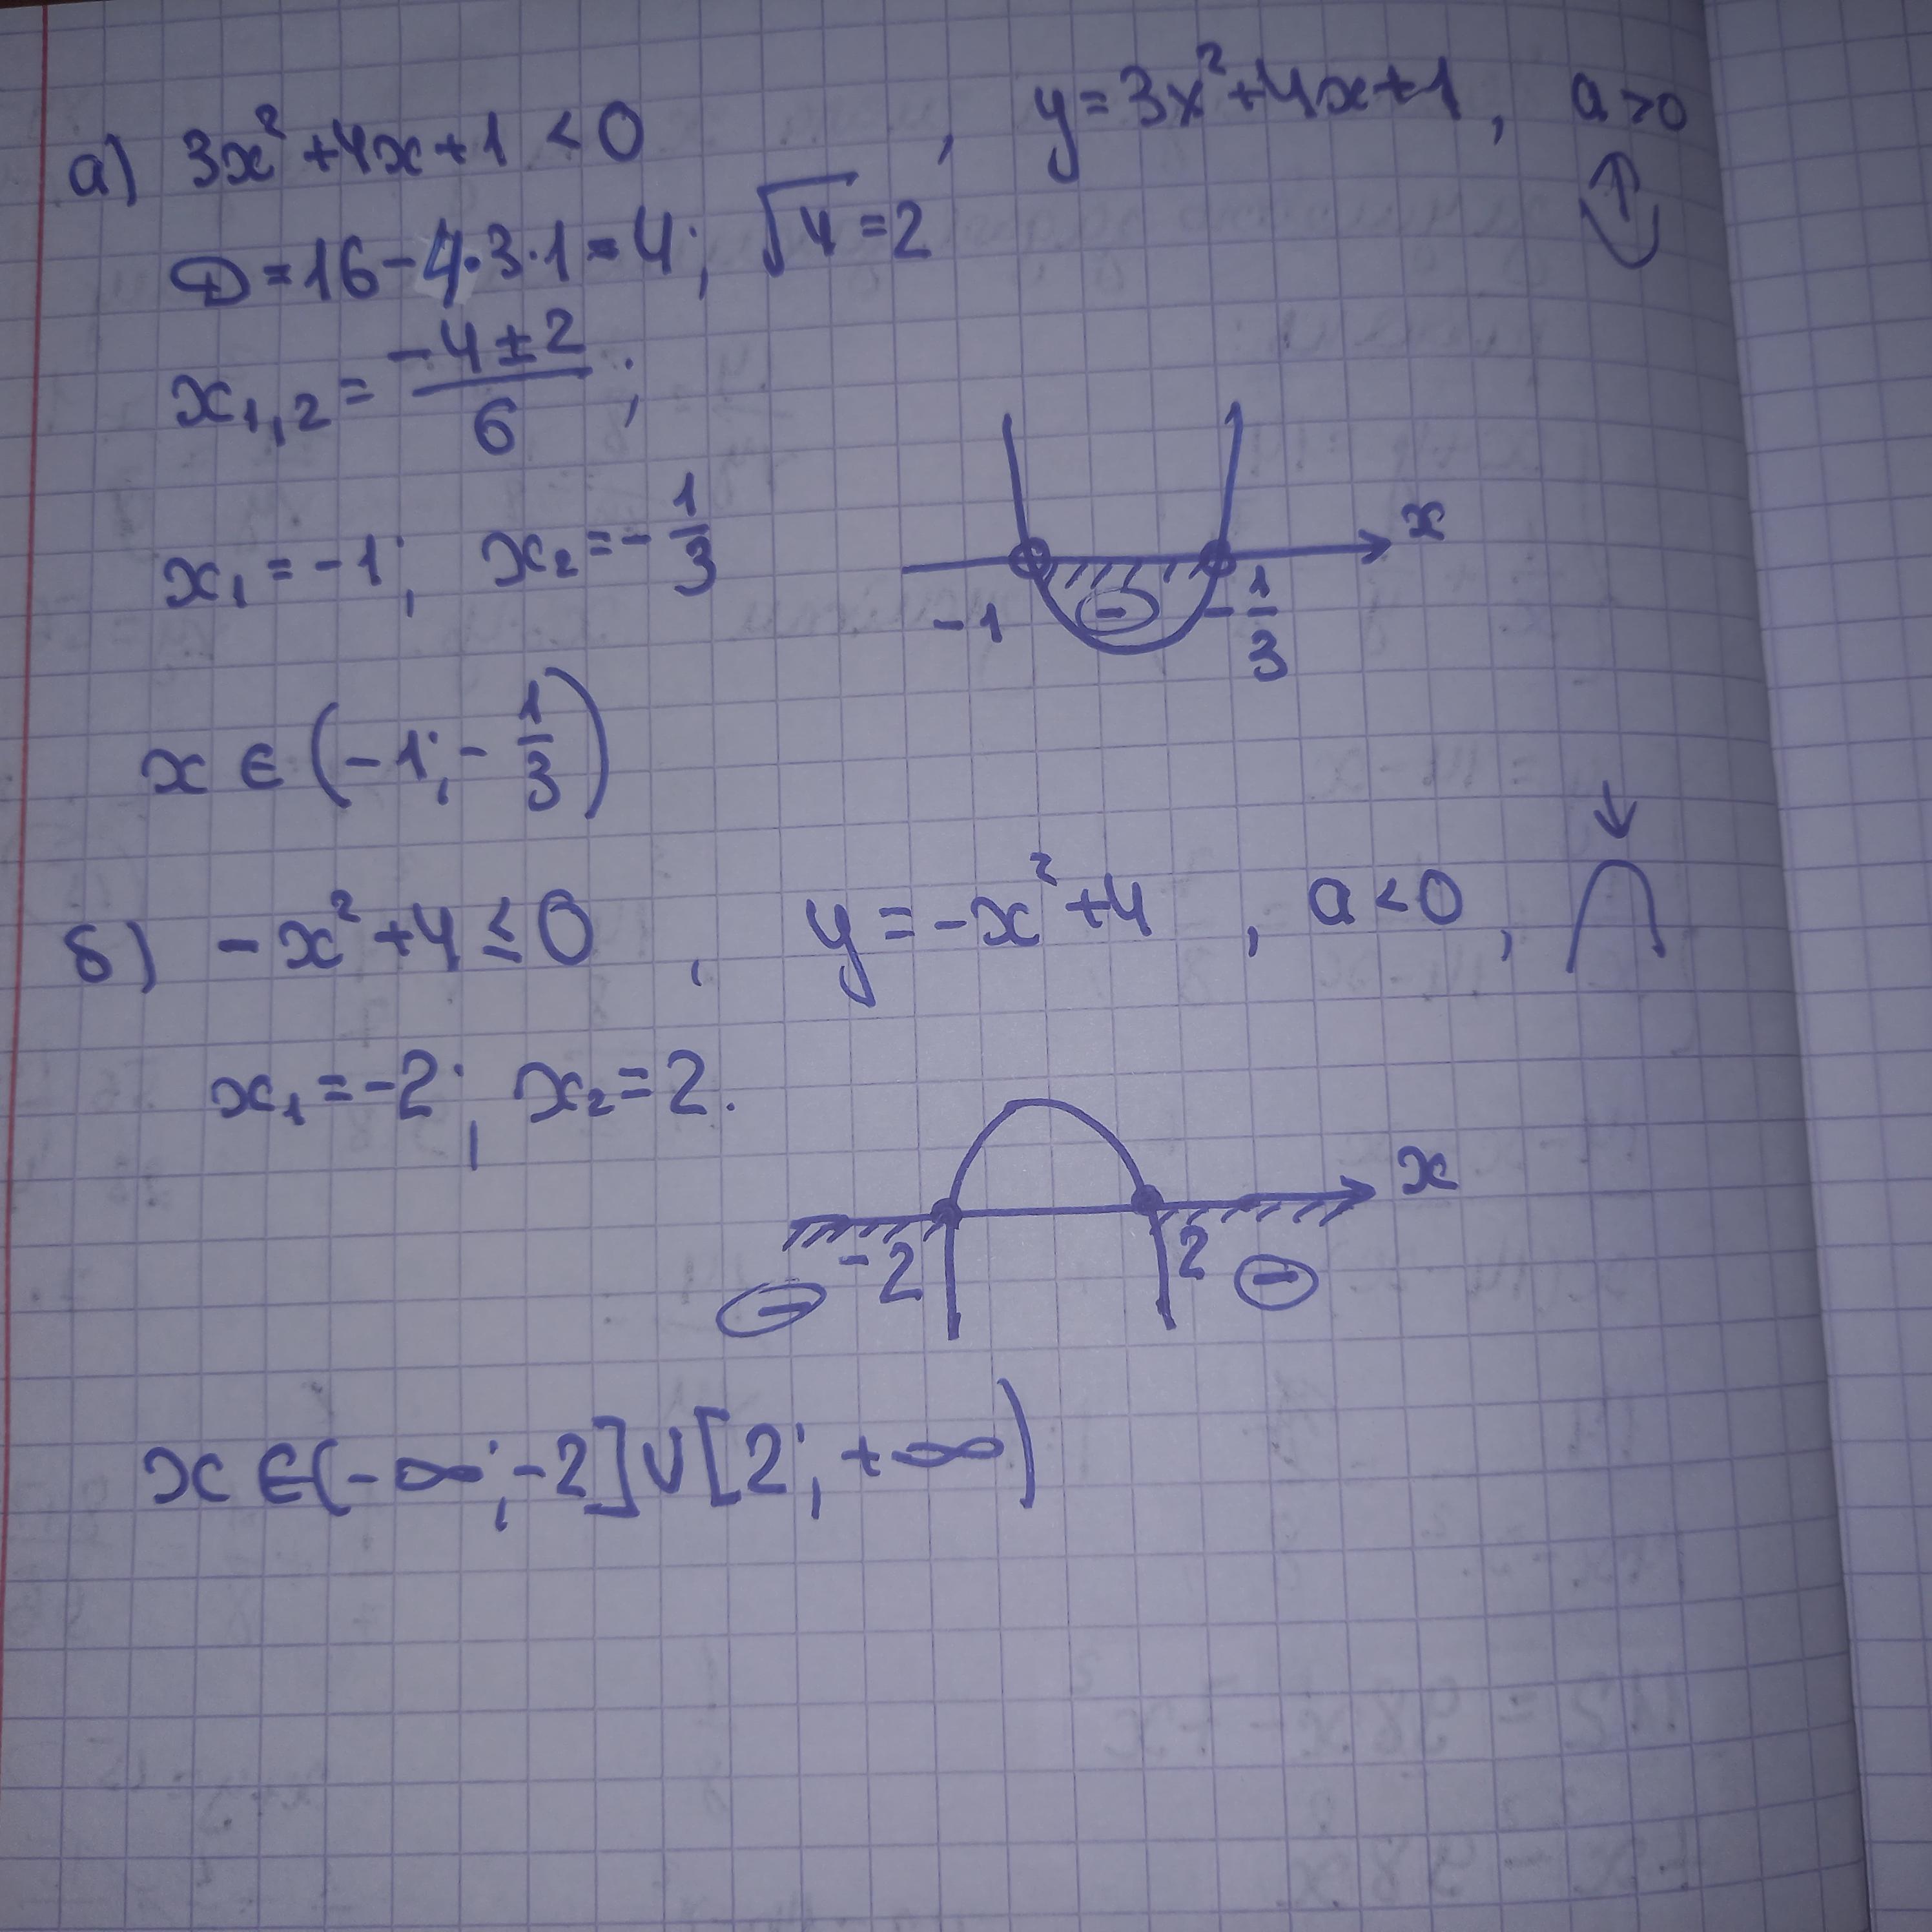 а) 3x² + 4x + 1 < 0 , y = 3x² + 4x + 1, a > 0
D = 16 - 4·3·1 = 4; √4 = 2
x₁,₂ = (-4 ± 2)/6 ;
x₁ = -1; x₂ = -1/3
x
-1 - -1/3
x ∈ (-1; -1/3)
б) -x² + 4 ≤ 0 , y = -x² + 4 , a < 0 ,
x₁ = -2; x₂ = 2.
x
- -2 2 -
x ∈ (-∞; -2] ∪ [2; +∞)